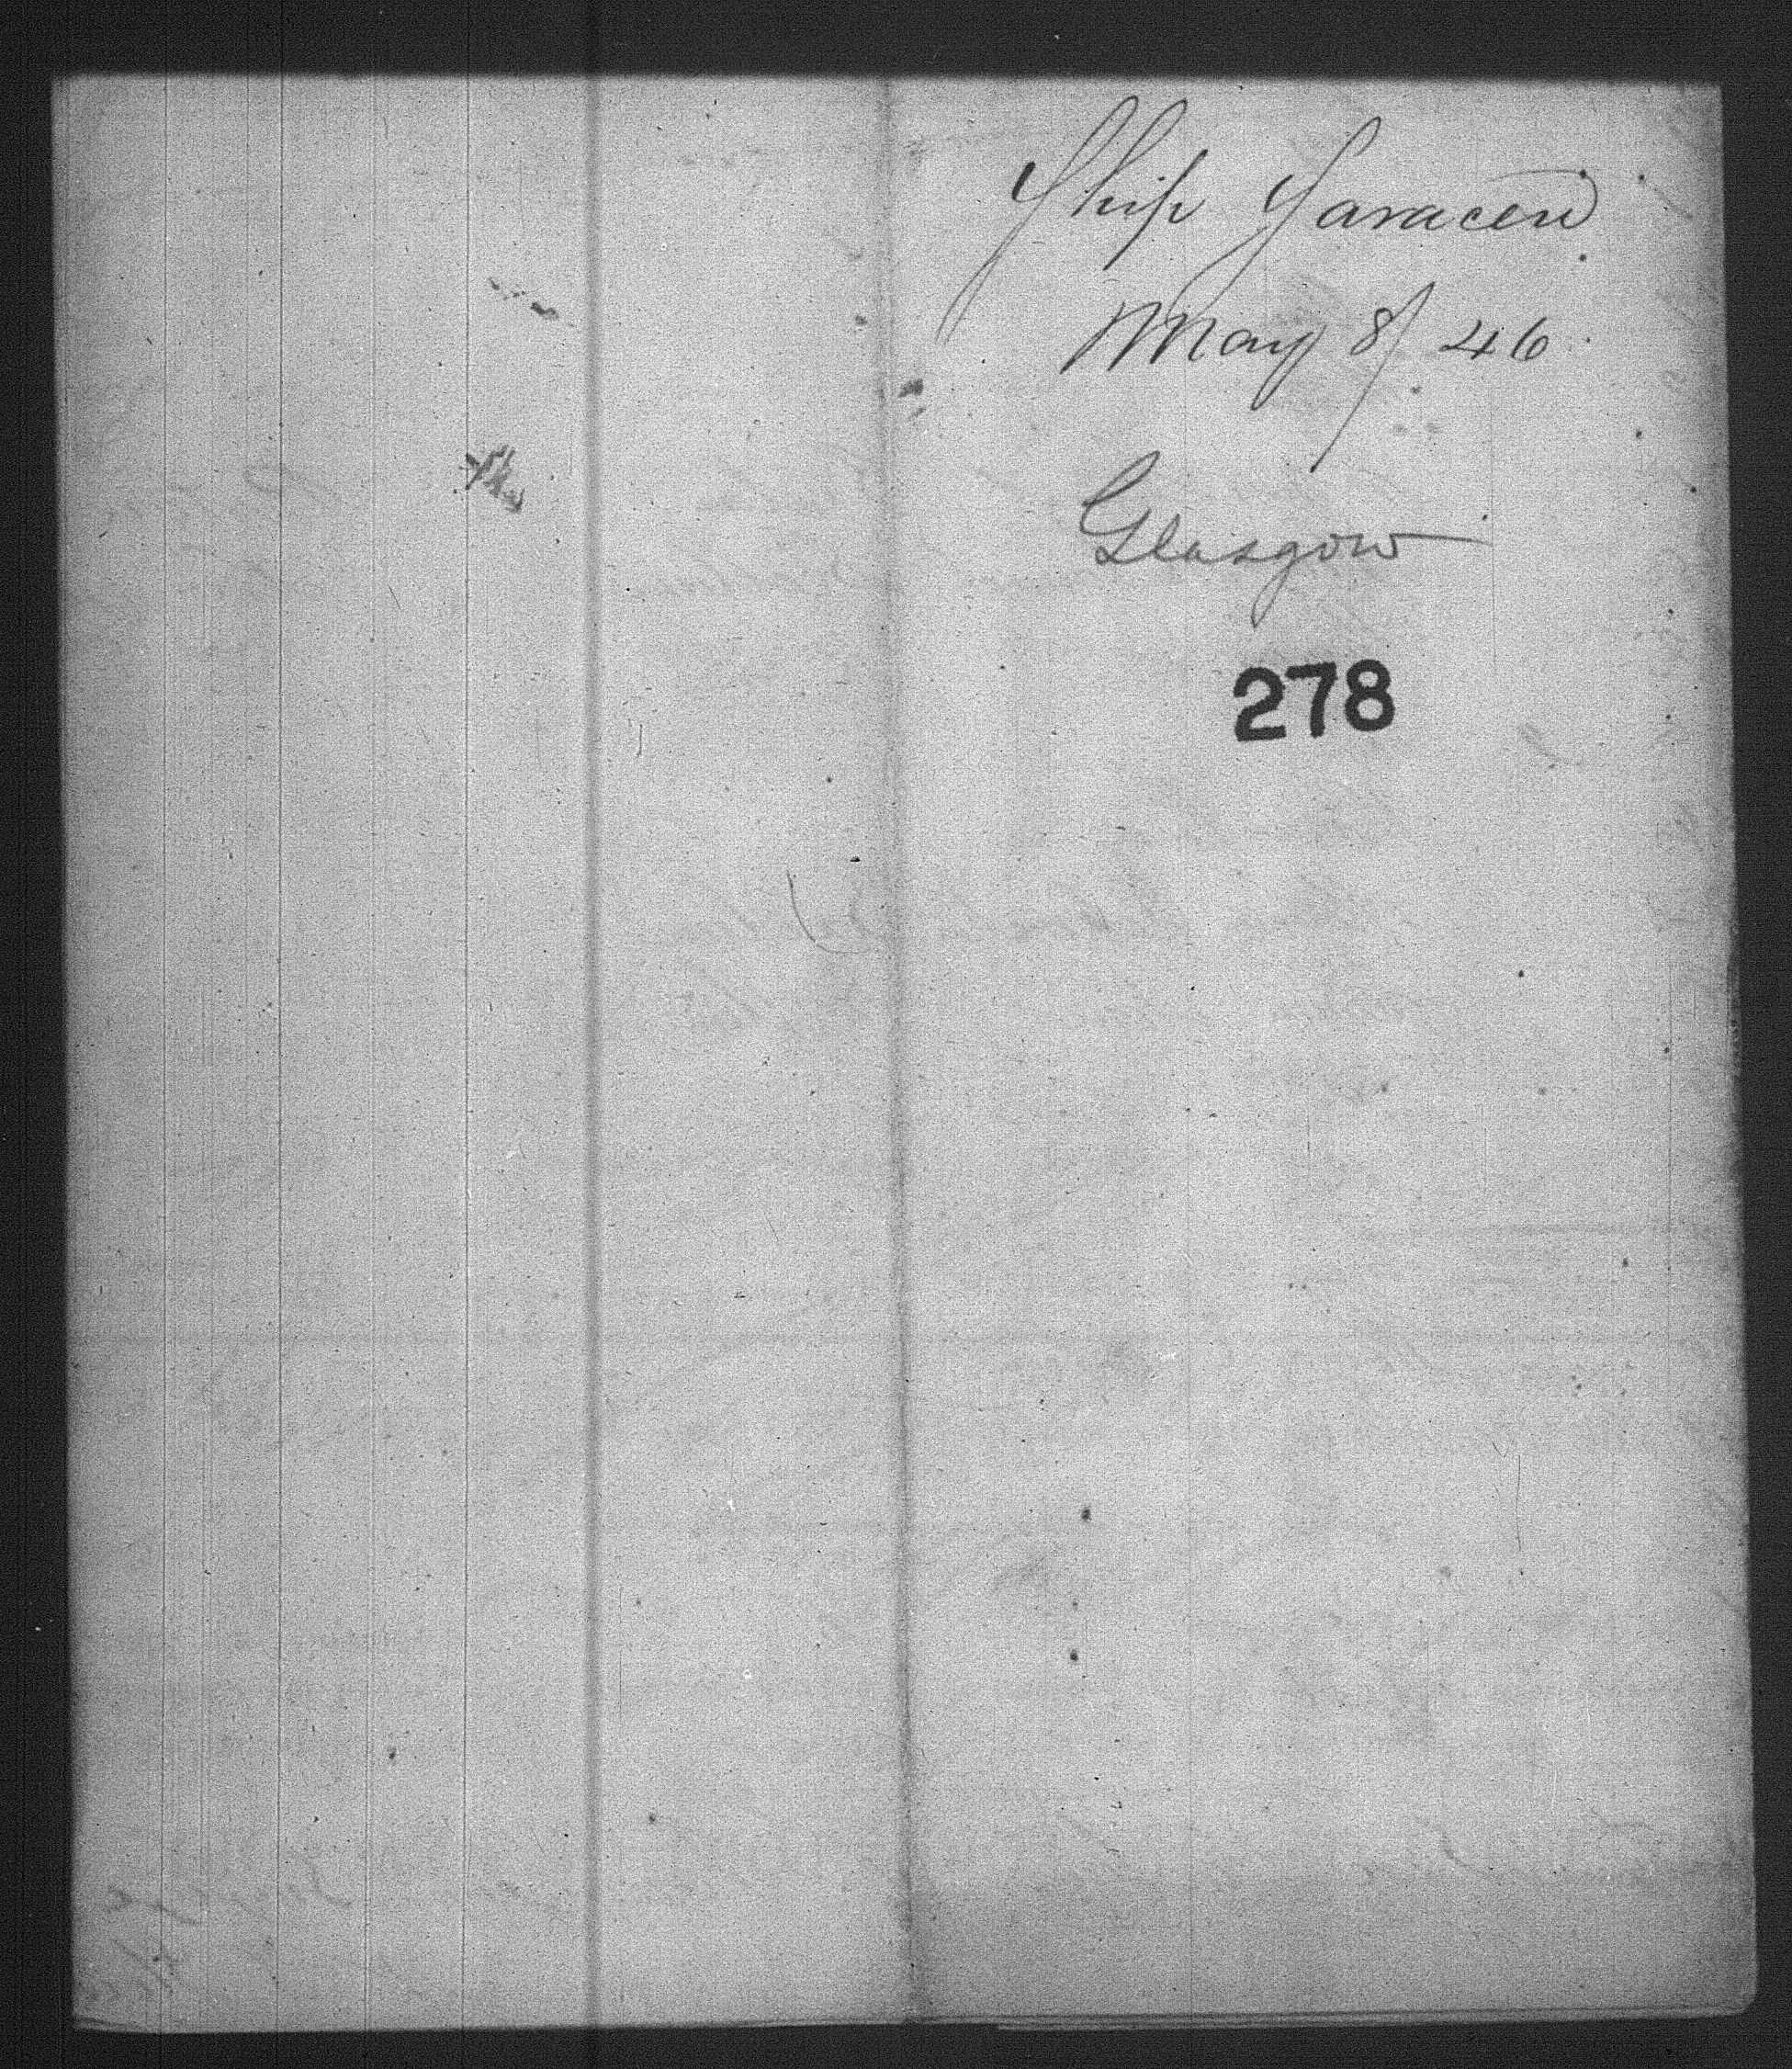 Ship Saracen
May 8/46
Glasgow
278